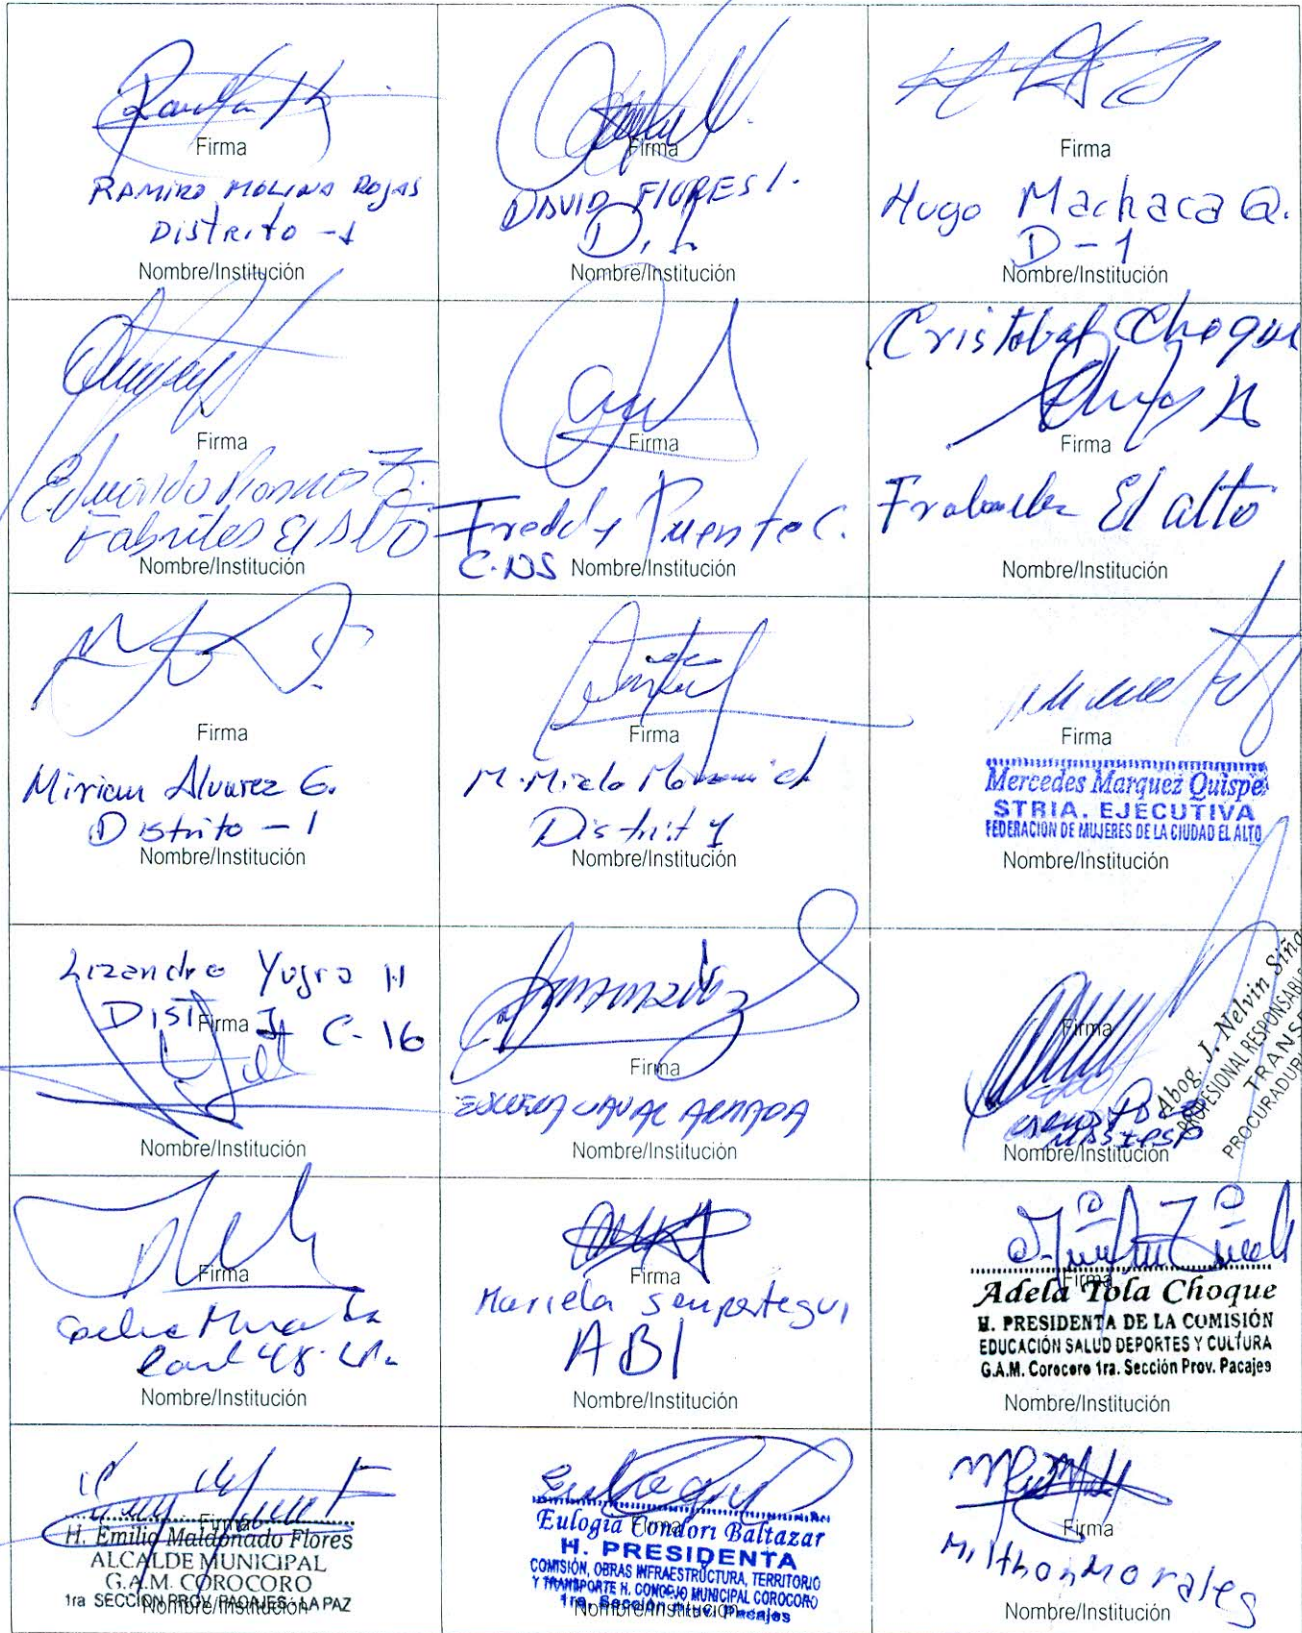 Firma
RAMIRO MOLINA ROJAS
Distrito -1
Nombre/Institución
Firma
DAVID FLORES I.
D. 1
Nombre/Institución
Firma
Hugo Machaca Q.
D-1
Nombre/Institución
Firma
Eduardo Ramos Z.
Fabriles El Alto
Nombre/Institución
Firma
Freddy Puente C.
C.DS
Nombre/Institución
Cristobal Choque
Firma
El alto
Nombre/Institución
Firma
Miriam Alvarez G.
Distrito - 1
Nombre/Institución
Firma
Distrit 1
Nombre/Institución
Firma
Mercedes Marquez Quispe
STRIA. EJECUTIVA
FEDERACION DE MUJERES DE LA CIUDAD EL ALTO
Nombre/Institución
Lizandro Yujra H
DIST I C-16
Firma
Nombre/Institución
Firma
NAVAL ARMADA
Nombre/Institución
Firma
Abog. J. Nelvin Siña
PROFESIONAL RESPONSABLE
TRANSP
PROCURADURI
Nombre/Institución
Firma
Nombre/Institución
Firma
Mariela
ABI
Nombre/Institución
Firma
Adela Tola Choque
H. PRESIDENTA DE LA COMISIÓN
EDUCACIÓN SALUD DEPORTES Y CULTURA
G.A.M. Corocoro 1ra. Sección Prov. Pacajes
Nombre/Institución
Firma
H. Emilio Maldonado Flores
ALCALDE MUNICIPAL
G.A.M. COROCORO
1ra SECCIÓN PROV. PACAJES - LA PAZ
Nombre/Institución
Firma
Eulogia Condori Baltazar
H. PRESIDENTA
COMISIÓN, OBRAS INFRAESTRUCTURA, TERRITORIO
Y TRANSPORTE H. CONCEJO MUNICIPAL COROCORO
1ra. Sección Prov. Pacajes
Nombre/Institución
Firma
Milthon Morales
Nombre/Institución